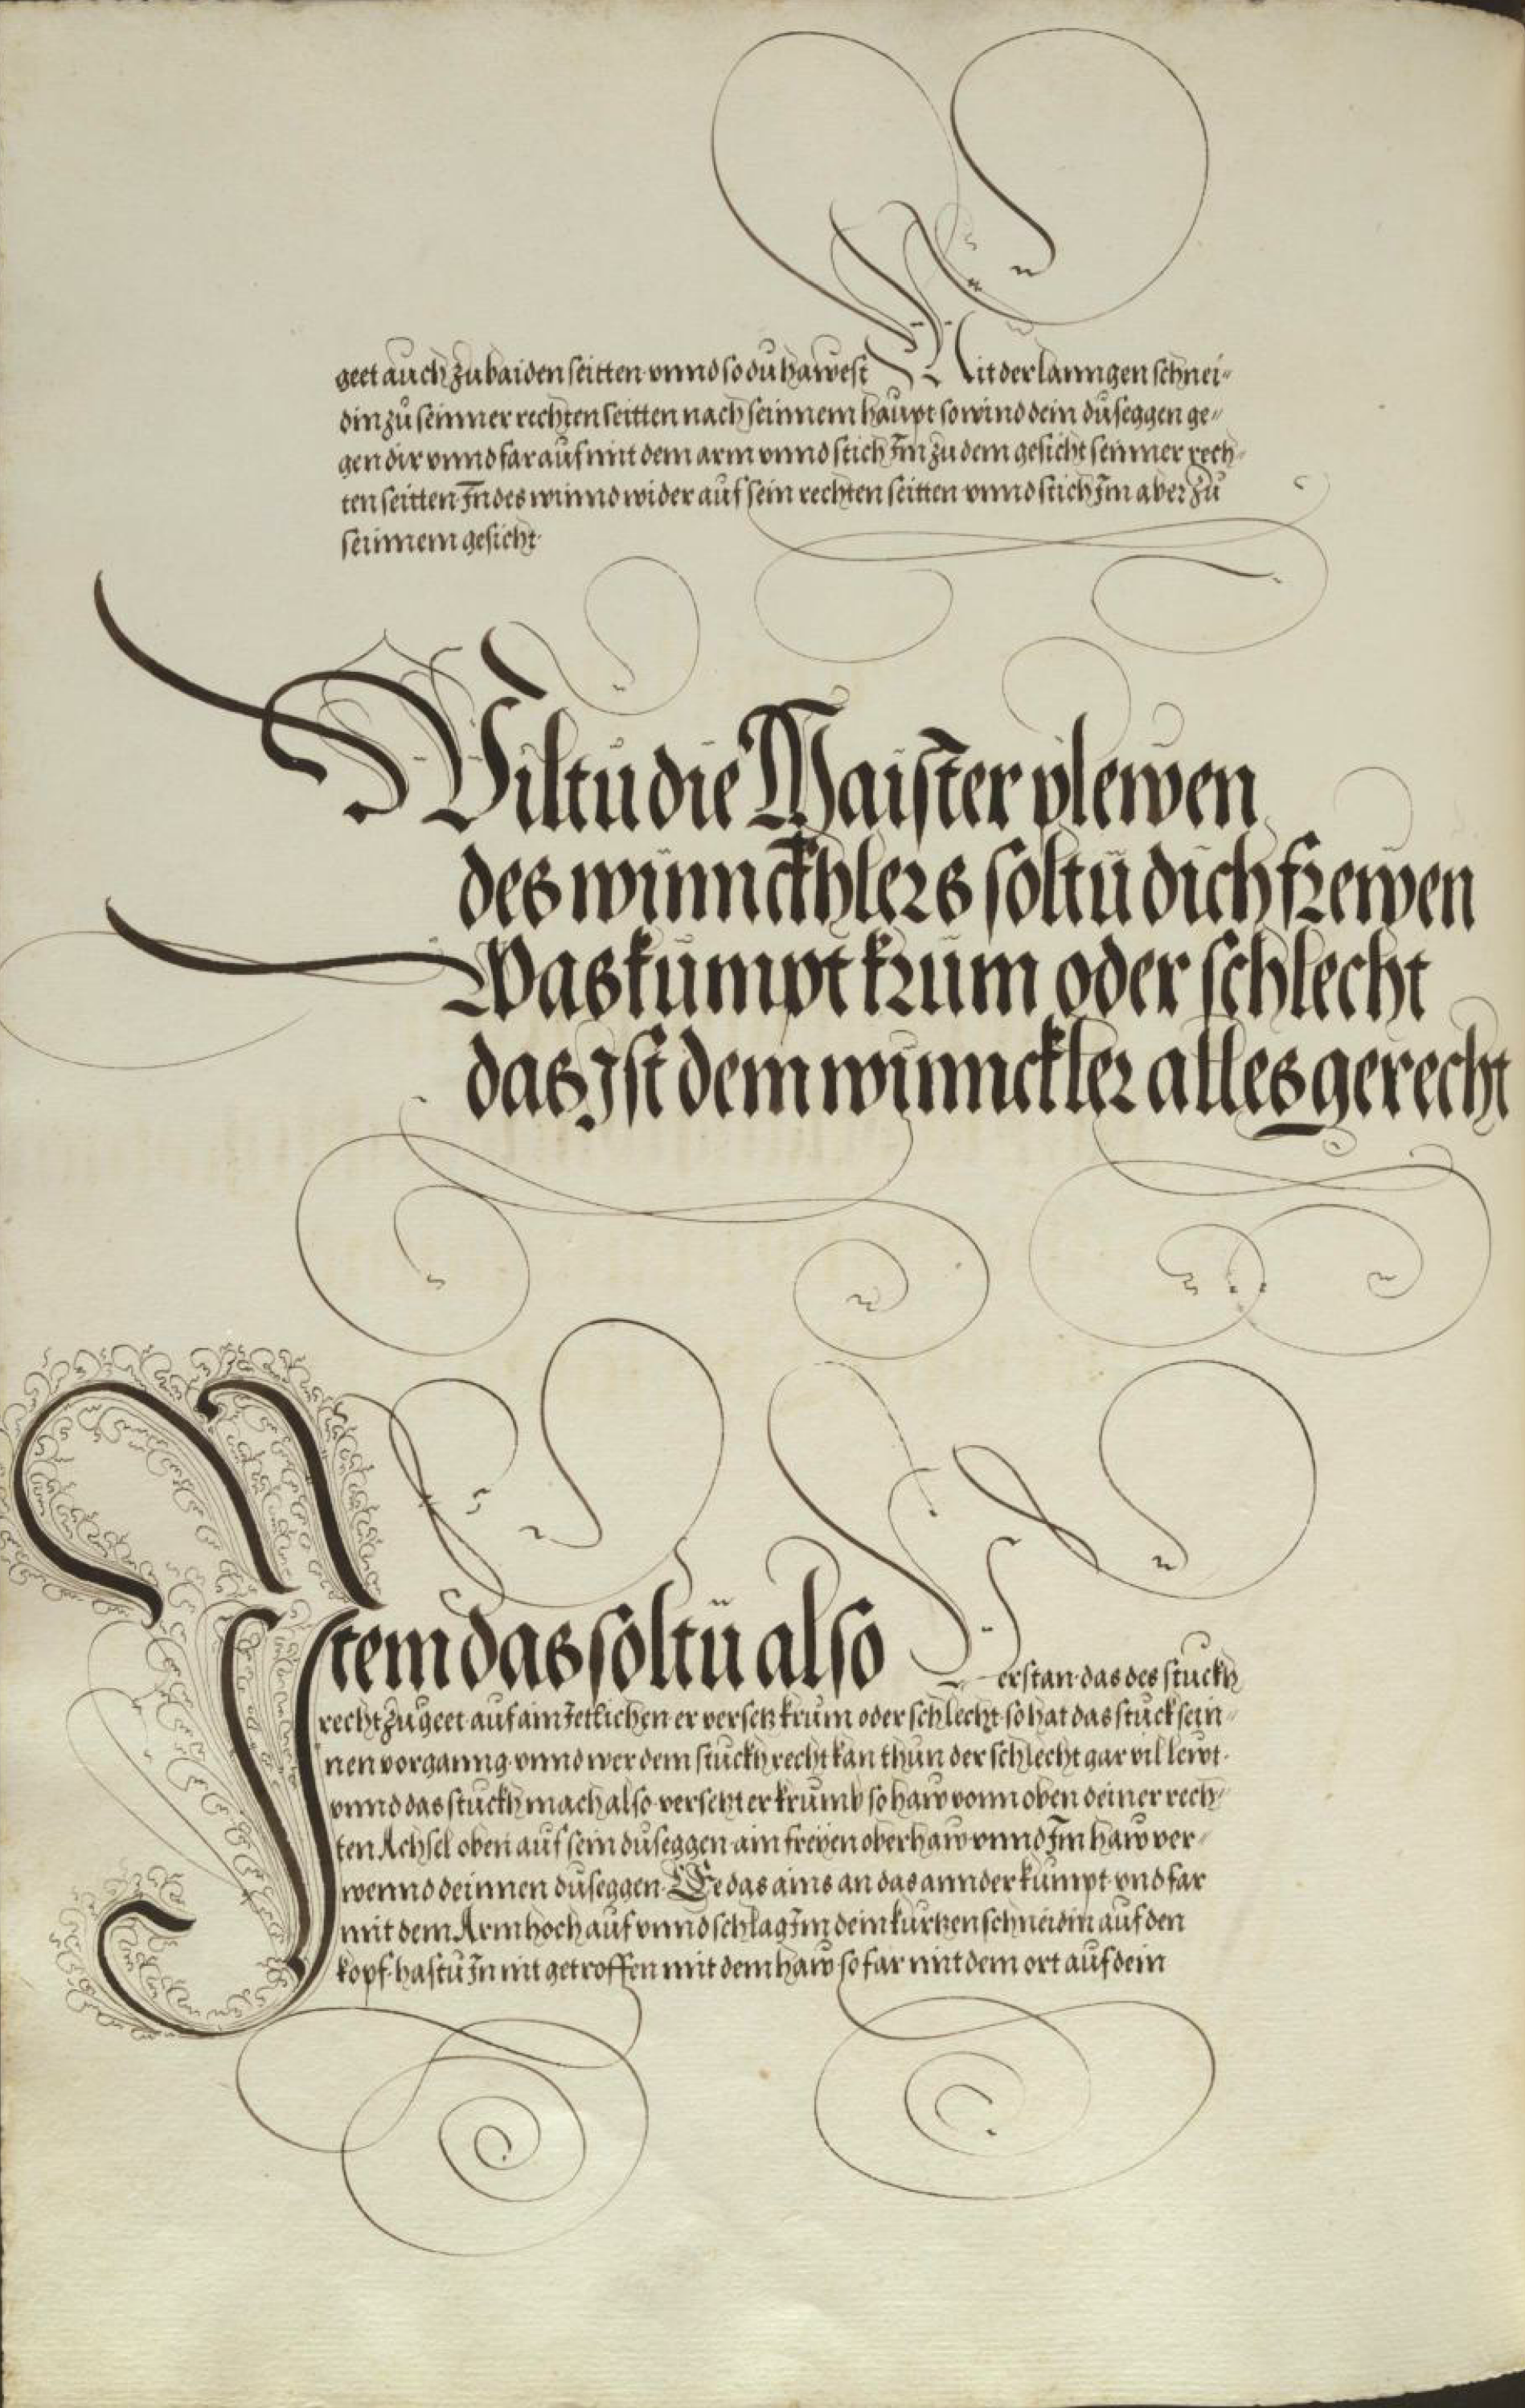 geet auch zu baiden seitten vnnd so du hawest Mit der lanngen schnei-
din zů seinner rechten seitten nach seinnem haupt so wind dein duseggen ge-
gen dir vnnd far auf mit dem arm vnnd stich Im zu dem gesicht seinner rech-
ten seitten Indes winnd wider auf sein rechten seitten vnnd stich Im aber zů
seinnem gesicht·
Wiltu die Maister plewen
des winnckhlers soltu dich frewen
Was kumpt krum oder schlecht
das Ist dem winnckler alles gerecht
Item das soltu also Verstan· das des stuckh
recht zu geet auf ain Ietlichen er versetz krum oder schlecht· so hat das stuck sein-
nen vorganng· vnnd wer dem stuckh recht kan thun der schlecht gar vil lewt·
vnnd das stuckh mach also· versetzt er krumb so haw vonn oben deiner rech-
ten Achsel oben auf sein duseggen· ain freyen oberhaw vnnd Im haw ver-
wennd deinnen duseggen· Ee das ains an das annder kumpt· vnd far
mit dem Arm hoch auf vnnd schlag Im dein kurtzen schneidin auf den
kopf· hastu In nit getroffen mit dem haw so far mit dem ort auf dein